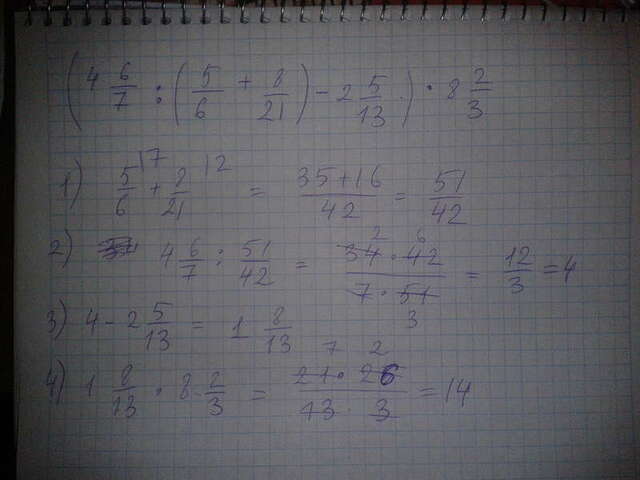 (4 6/7 : (5/6 + 8/21) - 2 5/13) · 8 2/3
1) 5/6 |7 + 8/21 |2 = 35+16/42 = 51/42
2) 4 6/7 : 51/42 = 34 2 · 42 6 / 7 · 51 3 = 12/3 = 4
3) 4 - 2 5/13 = 1 8/13
4) 1 8/13 · 8 2/3 = 21 7 · 26 2 / 13 · 3 = 14